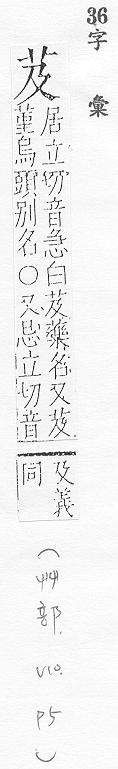 36字彙
芨
居立切音急白芨藥名又芨
菫烏頭别名○又忌立切音
及義
同
(艸部. V10. P5)